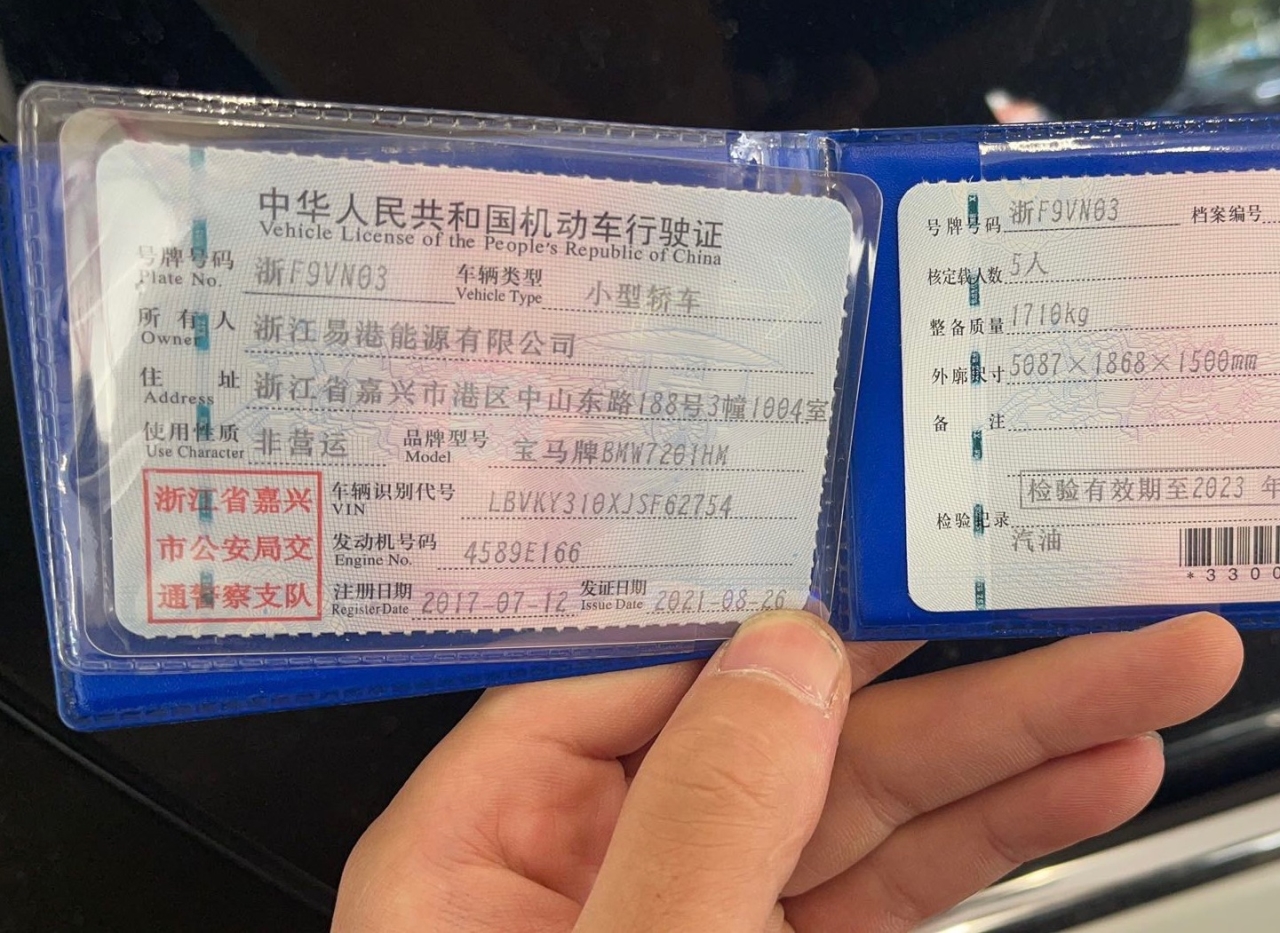 中华人民共和国机动车行驶证
Vehicle License of the People's Republic of China
号牌号码 浙F9VN03 车辆类型 小型轿车
Plate No. Vehicle Type
所有人 浙江易港能源有限公司
Owner
住址 浙江省嘉兴市港区中山东路188号3幢1004室
Address
使用性质 非营运 品牌型号 宝马牌BMW7201HM
Use Character Model
浙江省嘉兴
市公安局交
通警察支队
车辆识别代号 LBVKY310XJSF62754
VIN
发动机号码 4589E166
Engine No.
注册日期 2017-07-12 发证日期 2021-08-26
Register Date Issue Date
号牌号码 浙F9VN03 档案编号
核定载人数 5人
整备质量 1710kg
外廓尺寸 5087×1868×1500mm
备注
检验有效期至2023 年
检验记录
汽油
*3300